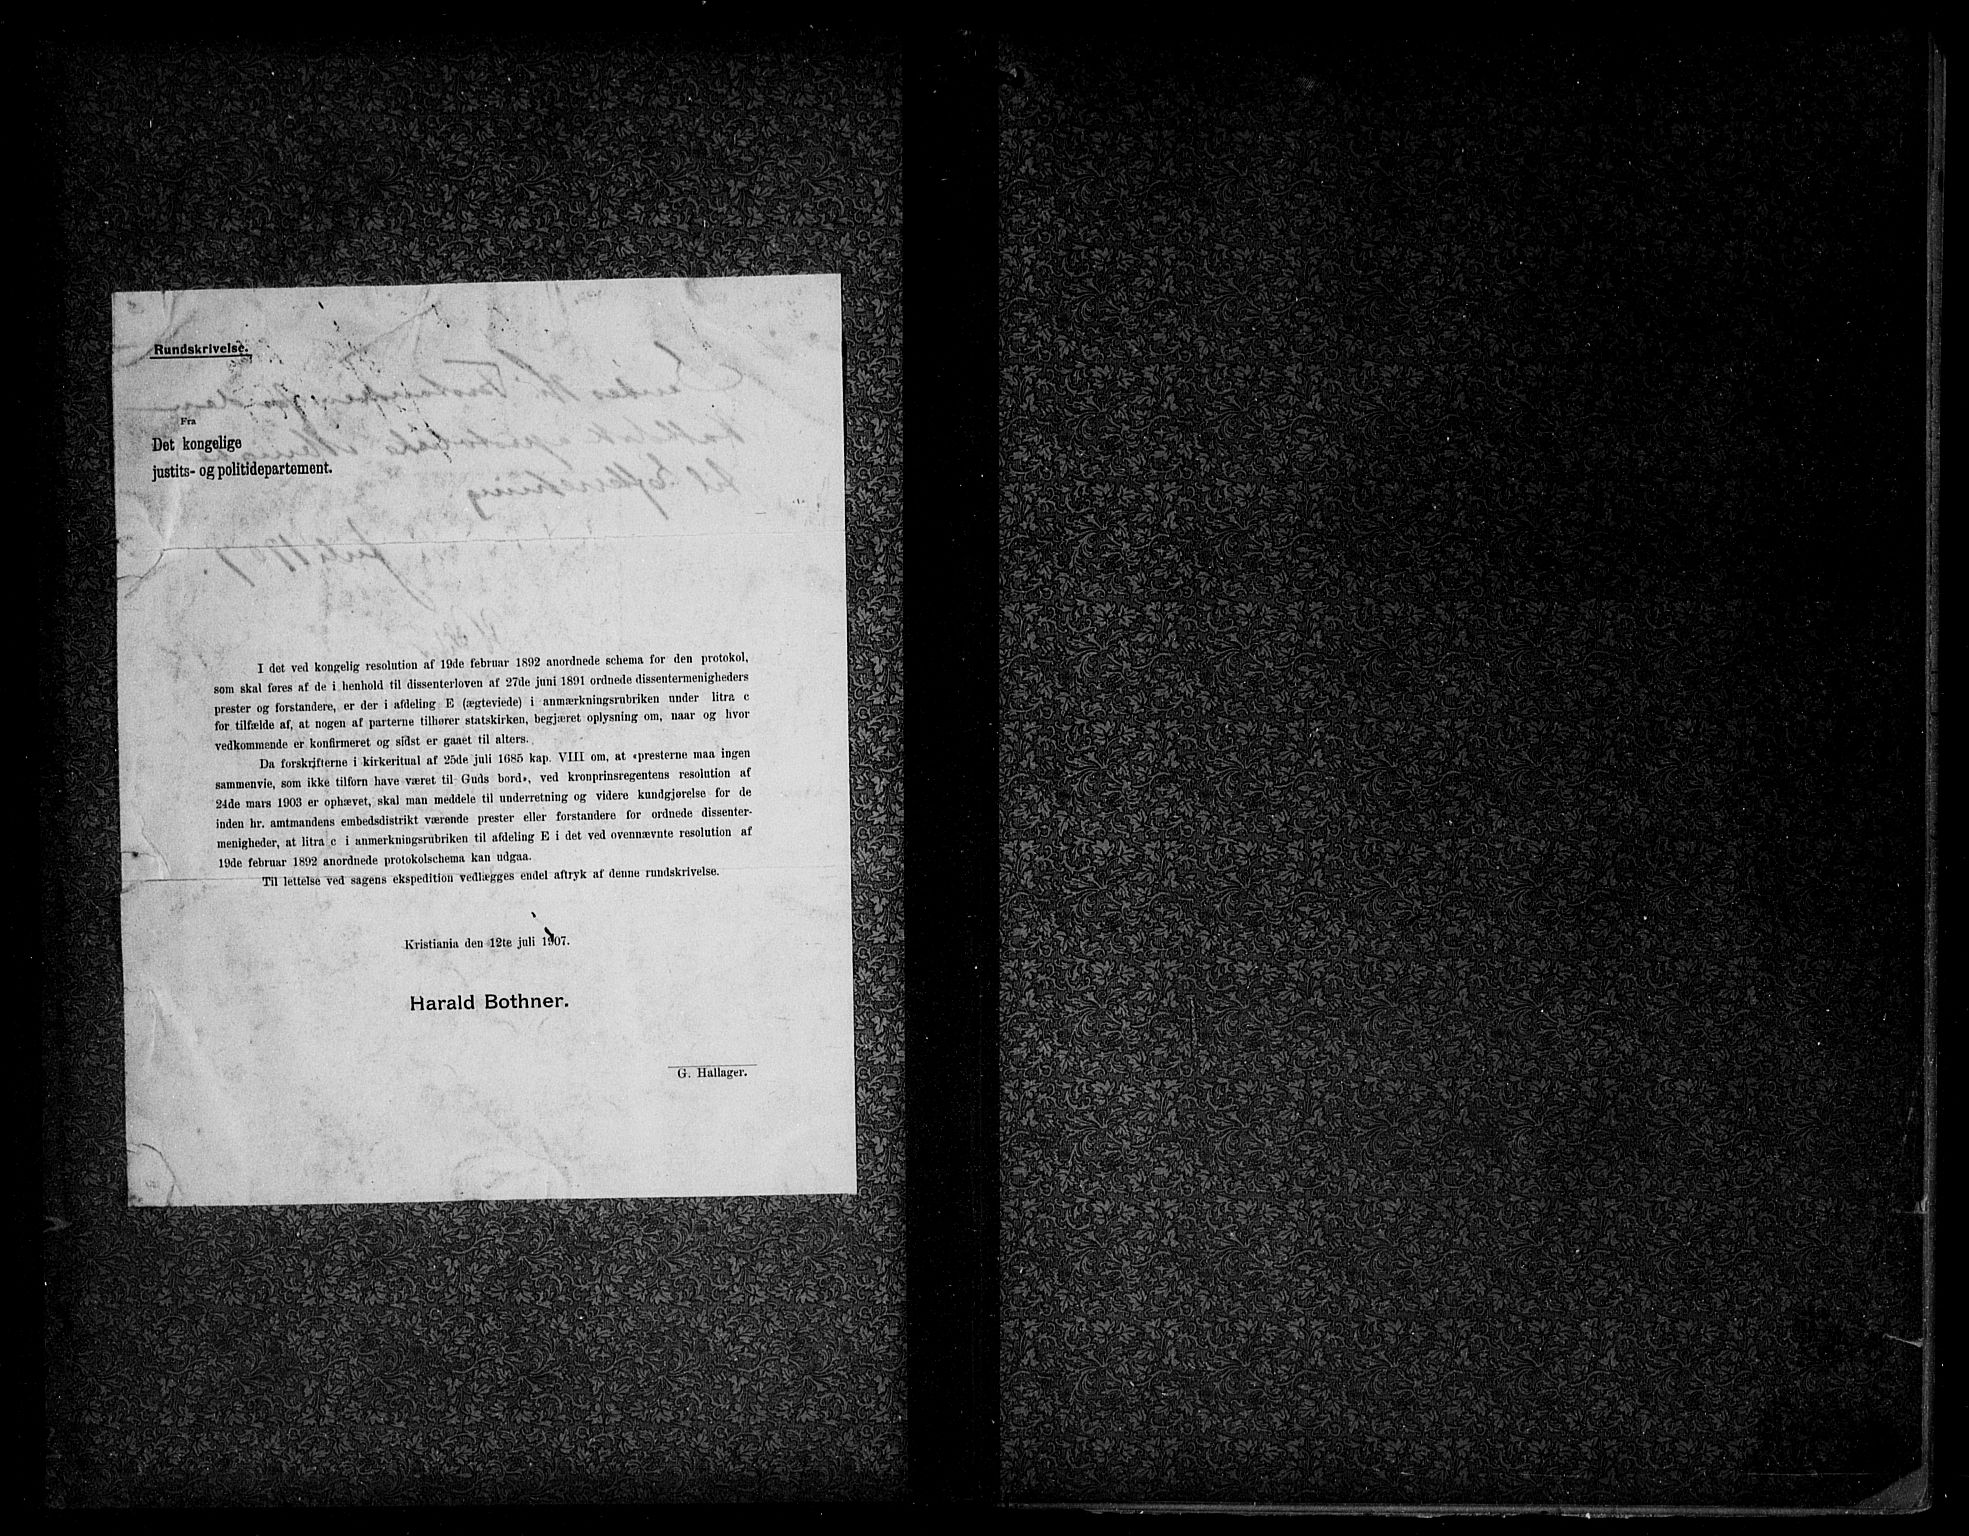 Rundskrivelse.
Fra
Det kongelige
justits- og politidepartement.
I det ved kongelig resolution af 19de februar 1892 anordnede schema for den protokol,
som skal føres af de i henhold til dissenterloven af 27de juni 1891 ordnede dissentermenigheders
prester og forstandere, er der i afdeling E (ægteviede) i anmærkningsrubriken under litra c
for tilfælde af, at nogen af parterne tilhører statskirken, begjæret oplysning om, naar og hvor
vedkommende er konfirmeret og sidst er gaaet til alters.
Da forskrifterne i kirkeritual af 25de juli 1685 kap. VIII om, at «presterne maa ingen
sammenvie, som ikke tilforn have været til Guds bord», ved kronprinsregentens resolution af
24de mars 1903 er ophævet, skal man meddele til underretning og videre kundgjørelse for de
inden hr. amtmandens embedsdistrikt værende prester eller forstandere for ordnede dissenter-
menigheder, at litra c i anmerkningsrubriken til afdeling E i det ved ovennævnte resolution af
19de februar 1892 anordnede protokolschema kan udgaa.
Til lettelse ved sagens ekspedition vedlægges endel aftryk af denne rundskrivelse.
Kristiania den 12te juli 1907.
Harald Bothner.
G. Hallager.